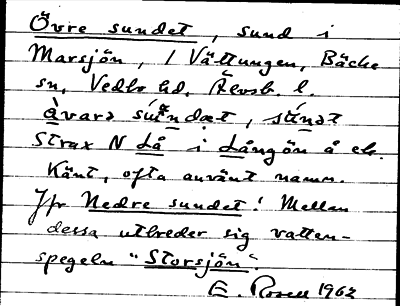 Övre sundet, sund i
Marsjön, / Vättungen, Bäcke
sn, Vedbo hd, Älvsb. l.
Strax N Lå i Långön å ek.
Känt, ofta använt namn.
Jfr Nedre sundet! Mellan
dessa utbreder sig vatten-
spegeln "Storsjön".
E. Rosell 1962